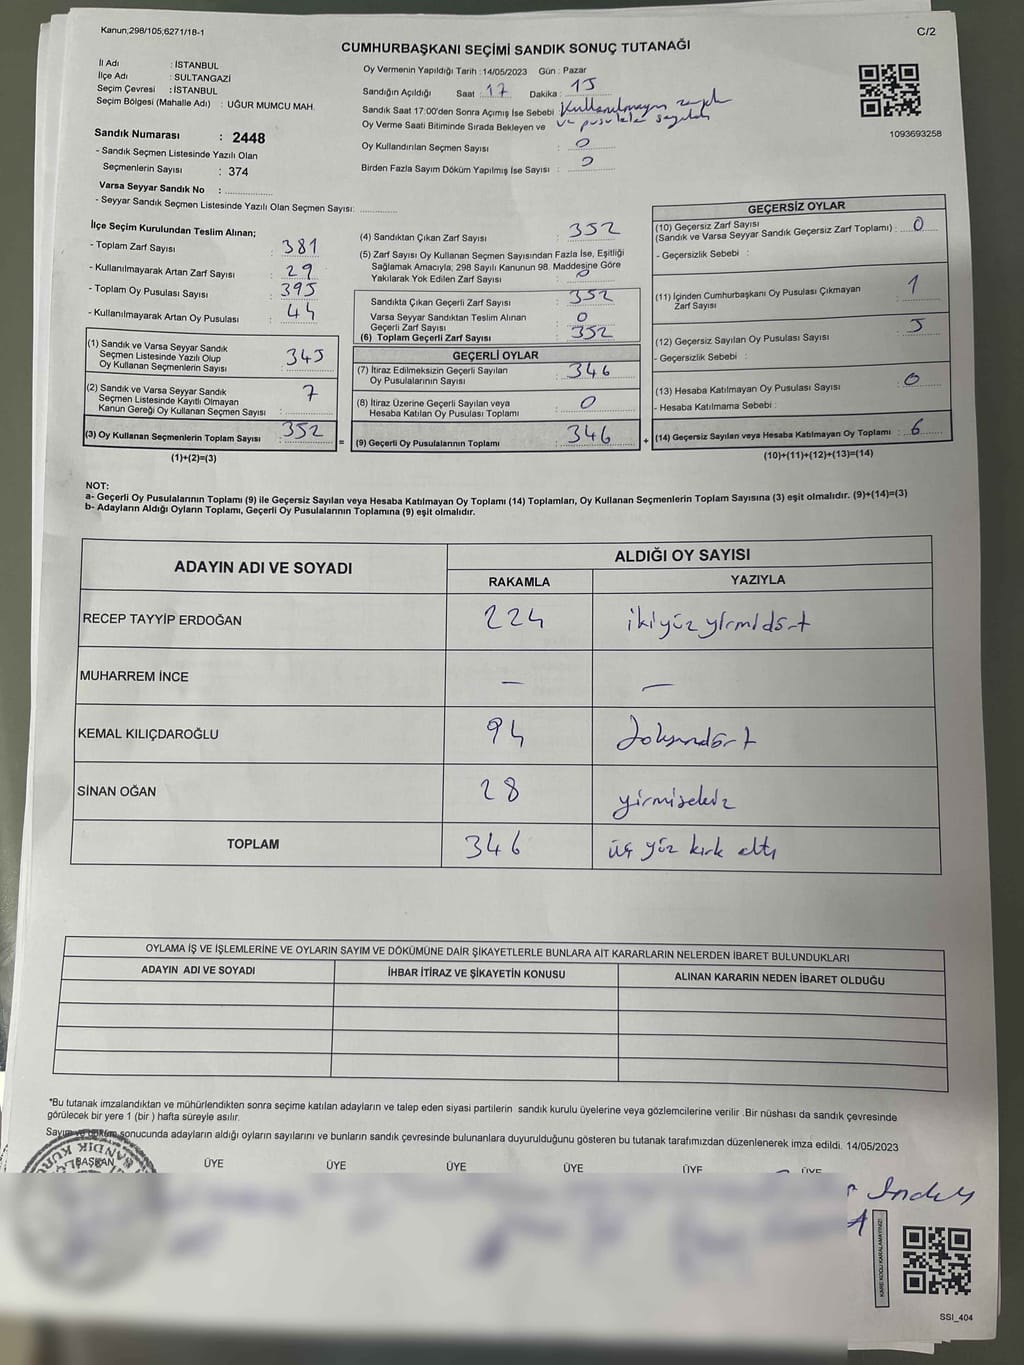 Kanun;298/105;6271/18-1
C/2
CUMHURBAŞKANI SEÇİMİ SANDIK SONUÇ TUTANAĞI
İl Adı : İSTANBUL
İlçe Adı : SULTANGAZİ
Seçim Çevresi : İSTANBUL
Seçim Bölgesi (Mahalle Adı) : UĞUR MUMCU MAH.
Sandık Numarası : 2448
- Sandık Seçmen Listesinde Yazılı Olan
Seçmenlerin Sayısı : 374
Varsa Seyyar Sandık No :
- Seyyar Sandık Seçmen Listesinde Yazılı Olan Seçmen Sayısı:
Oy Vermenin Yapıldığı Tarih : 14/05/2023 Gün : Pazar
Sandığın Açıldığı Saat : 17 Dakika : 15
Sandık Saat 17:00'den Sonra Açımış İse Sebebi : Kullanılmayan zarf
Oy Verme Saati Bitiminde Sırada Bekleyen ve ve pusulalar sayıldı
Oy Kullandırılan Seçmen Sayısı : 0
Birden Fazla Sayım Döküm Yapılmış İse Sayısı : 0
1093693258
İlçe Seçim Kurulundan Teslim Alınan;
- Toplam Zarf Sayısı : 381
- Kullanılmayarak Artan Zarf Sayısı : 29
- Toplam Oy Pusulası Sayısı : 395
- Kullanılmayarak Artan Oy Pusulası : 44
(1) Sandık ve Varsa Seyyar Sandık
Seçmen Listesinde Yazılı Olup
Oy Kullanan Seçmenlerin Sayısı : 345
(2) Sandık ve Varsa Seyyar Sandık
Seçmen Listesinde Kayıtlı Olmayan
Kanun Gereği Oy Kullanan Seçmen Sayısı : 7
(3) Oy Kullanan Seçmenlerin Toplam Sayısı : 352
(1)+(2)=(3)
(4) Sandıktan Çıkan Zarf Sayısı : 352
(5) Zarf Sayısı Oy Kullanan Seçmen Sayısından Fazla İse, Eşitliği
Sağlamak Amacıyla; 298 Sayılı Kanunun 98. Maddesine Göre
Yakılarak Yok Edilen Zarf Sayısı : 0
Sandıkta Çıkan Geçerli Zarf Sayısı : 352
Varsa Seyyar Sandıktan Teslim Alınan
Geçerli Zarf Sayısı : 0
(6) Toplam Geçerli Zarf Sayısı : 352
GEÇERLİ OYLAR
(7) İtiraz Edilmeksizin Geçerli Sayılan
Oy Pusulalarının Sayısı : 346
(8) İtiraz Üzerine Geçerli Sayılan veya
Hesaba Katılan Oy Pusulası Toplamı : 0
= (9) Geçerli Oy Pusulalarının Toplamı : 346
GEÇERSİZ OYLAR
(10) Geçersiz Zarf Sayısı
(Sandık ve Varsa Seyyar Sandık Geçersiz Zarf Toplamı) : 0
- Geçersizlik Sebebi :
(11) İçinden Cumhurbaşkanı Oy Pusulası Çıkmayan
Zarf Sayısı : 1
(12) Geçersiz Sayılan Oy Pusulası Sayısı : 5
- Geçersizlik Sebebi :
(13) Hesaba Katılmayan Oy Pusulası Sayısı : 0
- Hesaba Katılmama Sebebi :
+ (14) Geçersiz Sayılan veya Hesaba Katılmayan Oy Toplamı : 6
(10)+(11)+(12)+(13)=(14)
NOT:
a- Geçerli Oy Pusulalarının Toplamı (9) ile Geçersiz Sayılan veya Hesaba Katılmayan Oy Toplamı (14) Toplamları, Oy Kullanan Seçmenlerin Toplam Sayısına (3) eşit olmalıdır. (9)+(14)=(3)
b- Adayların Aldığı Oyların Toplamı, Geçerli Oy Pusulalarının Toplamına (9) eşit olmalıdır.
ADAYIN ADI VE SOYADI
ALDIĞI OY SAYISI
RAKAMLA YAZIYLA
RECEP TAYYİP ERDOĞAN 224 ikiyüzyirmidört
MUHARREM İNCE — —
KEMAL KILIÇDAROĞLU 94 doksandört
SİNAN OĞAN 28 yirmisekiz
TOPLAM 346 üç yüz kırk altı
OYLAMA İŞ VE İŞLEMLERİNE VE OYLARIN SAYIM VE DÖKÜMÜNE DAİR ŞİKAYETLERLE BUNLARA AİT KARARLARIN NELERDEN İBARET BULUNDUKLARI
ADAYIN ADI VE SOYADI İHBAR İTİRAZ VE ŞİKAYETİN KONUSU ALINAN KARARIN NEDEN İBARET OLDUĞU
*Bu tutanak imzalandıktan ve mühürlendikten sonra seçime katılan adayların ve talep eden siyasi partilerin sandık kurulu üyelerine veya gözlemcilerine verilir .Bir nüshası da sandık çevresinde
görülecek bir yere 1 (bir ) hafta süreyle asılır.
Sayım ve döküm sonucunda adayların aldığı oyların sayılarını ve bunların sandık çevresinde bulunanlara duyurulduğunu gösteren bu tutanak tarafımızdan düzenlenerek imza edildi. 14/05/2023
BAŞKAN ÜYE ÜYE ÜYE ÜYE ÜYE ÜYE
KARE KODU KARALAMAYINIZ!
SSI_404